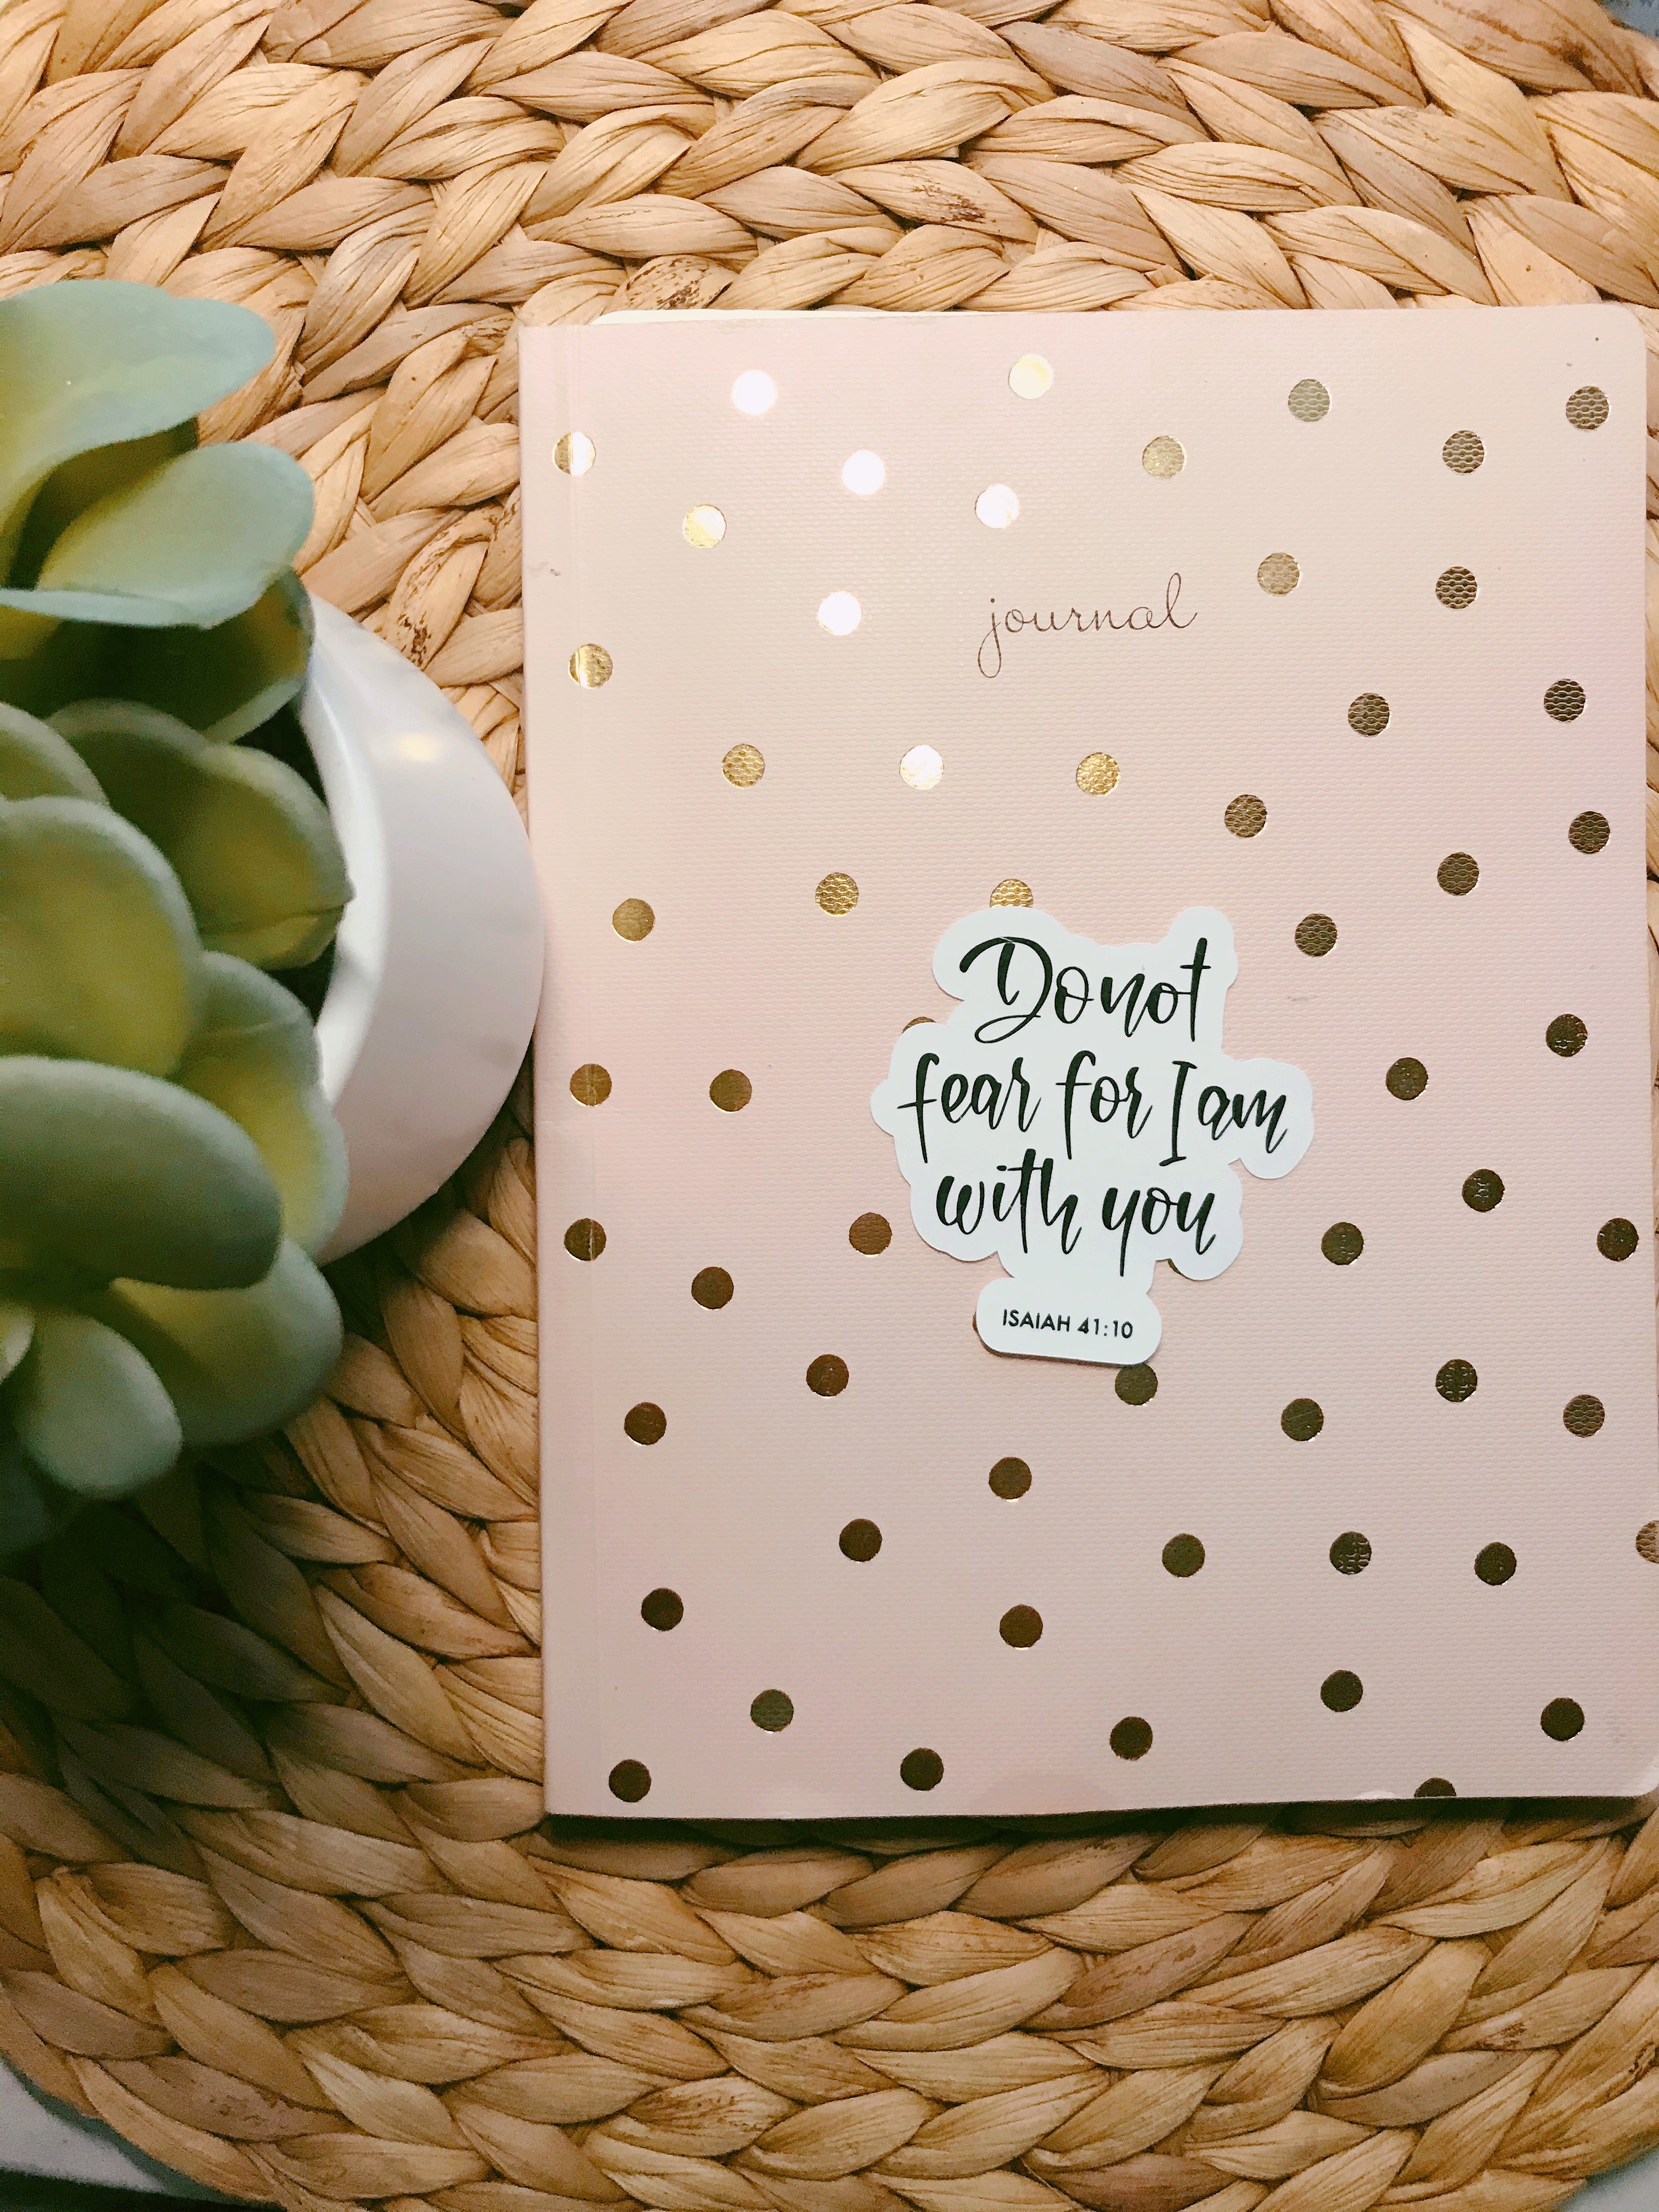 journal
Do not
fear for I am
with you
ISAIAH 41:10